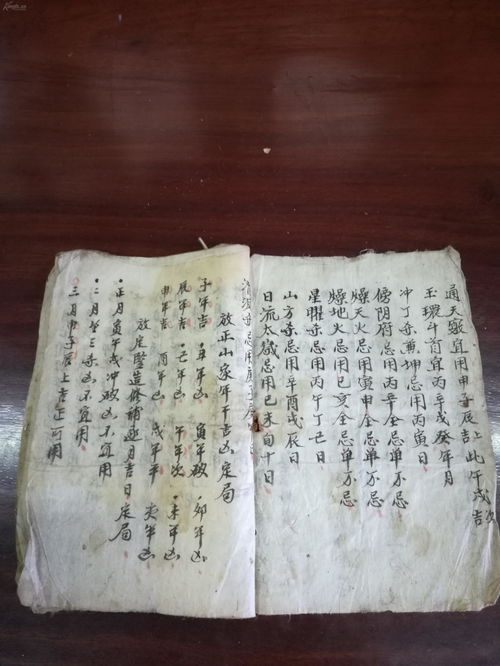 通天竅宜用申子辰吉上此午戌次吉
玉璇斗首宜丙辛戌癸年月
冲丁杀兼坤忌用丙寅日
傍阴府忌用丙辛全忌单不忌
燥天火忌用寅申全忌单不忌
燥地火忌用巳亥全忌单不忌
星曜杀忌用丙午丁巳日
山方杀忌用辛酉戊辰日
日流太歲忌用己未旬十日
忌用庚子
放正山家年干吉凶定局
子年吉 丑年凶 寅年破 卯年凶
辰年吉 巳年凶 午年次 未年凶
申年吉 酉年凶 戌年平 亥年凶
放座竪造修補逐月吉日定局
正月寅午戌冲破凶不宜用
二月登三杀凶不宜用
三月申子辰上吉正可用